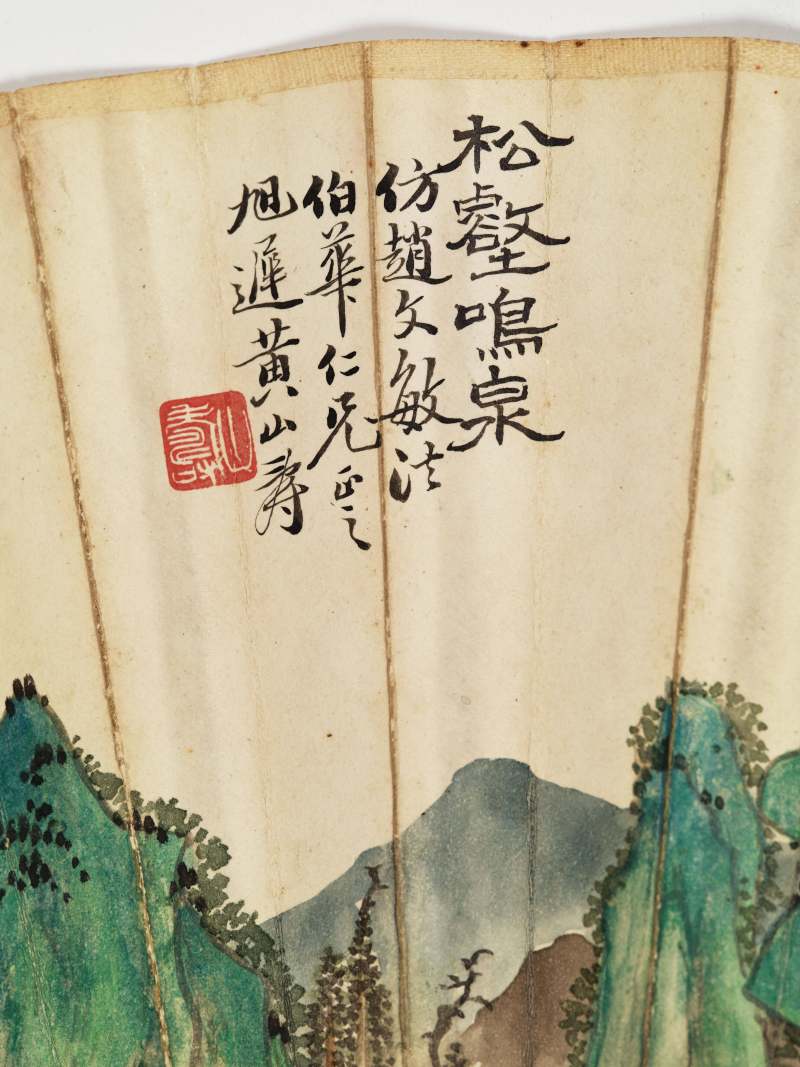 松壑鳴泉
仿趙文敏法
伯華仁兄正之
旭遲黃山壽
山壽